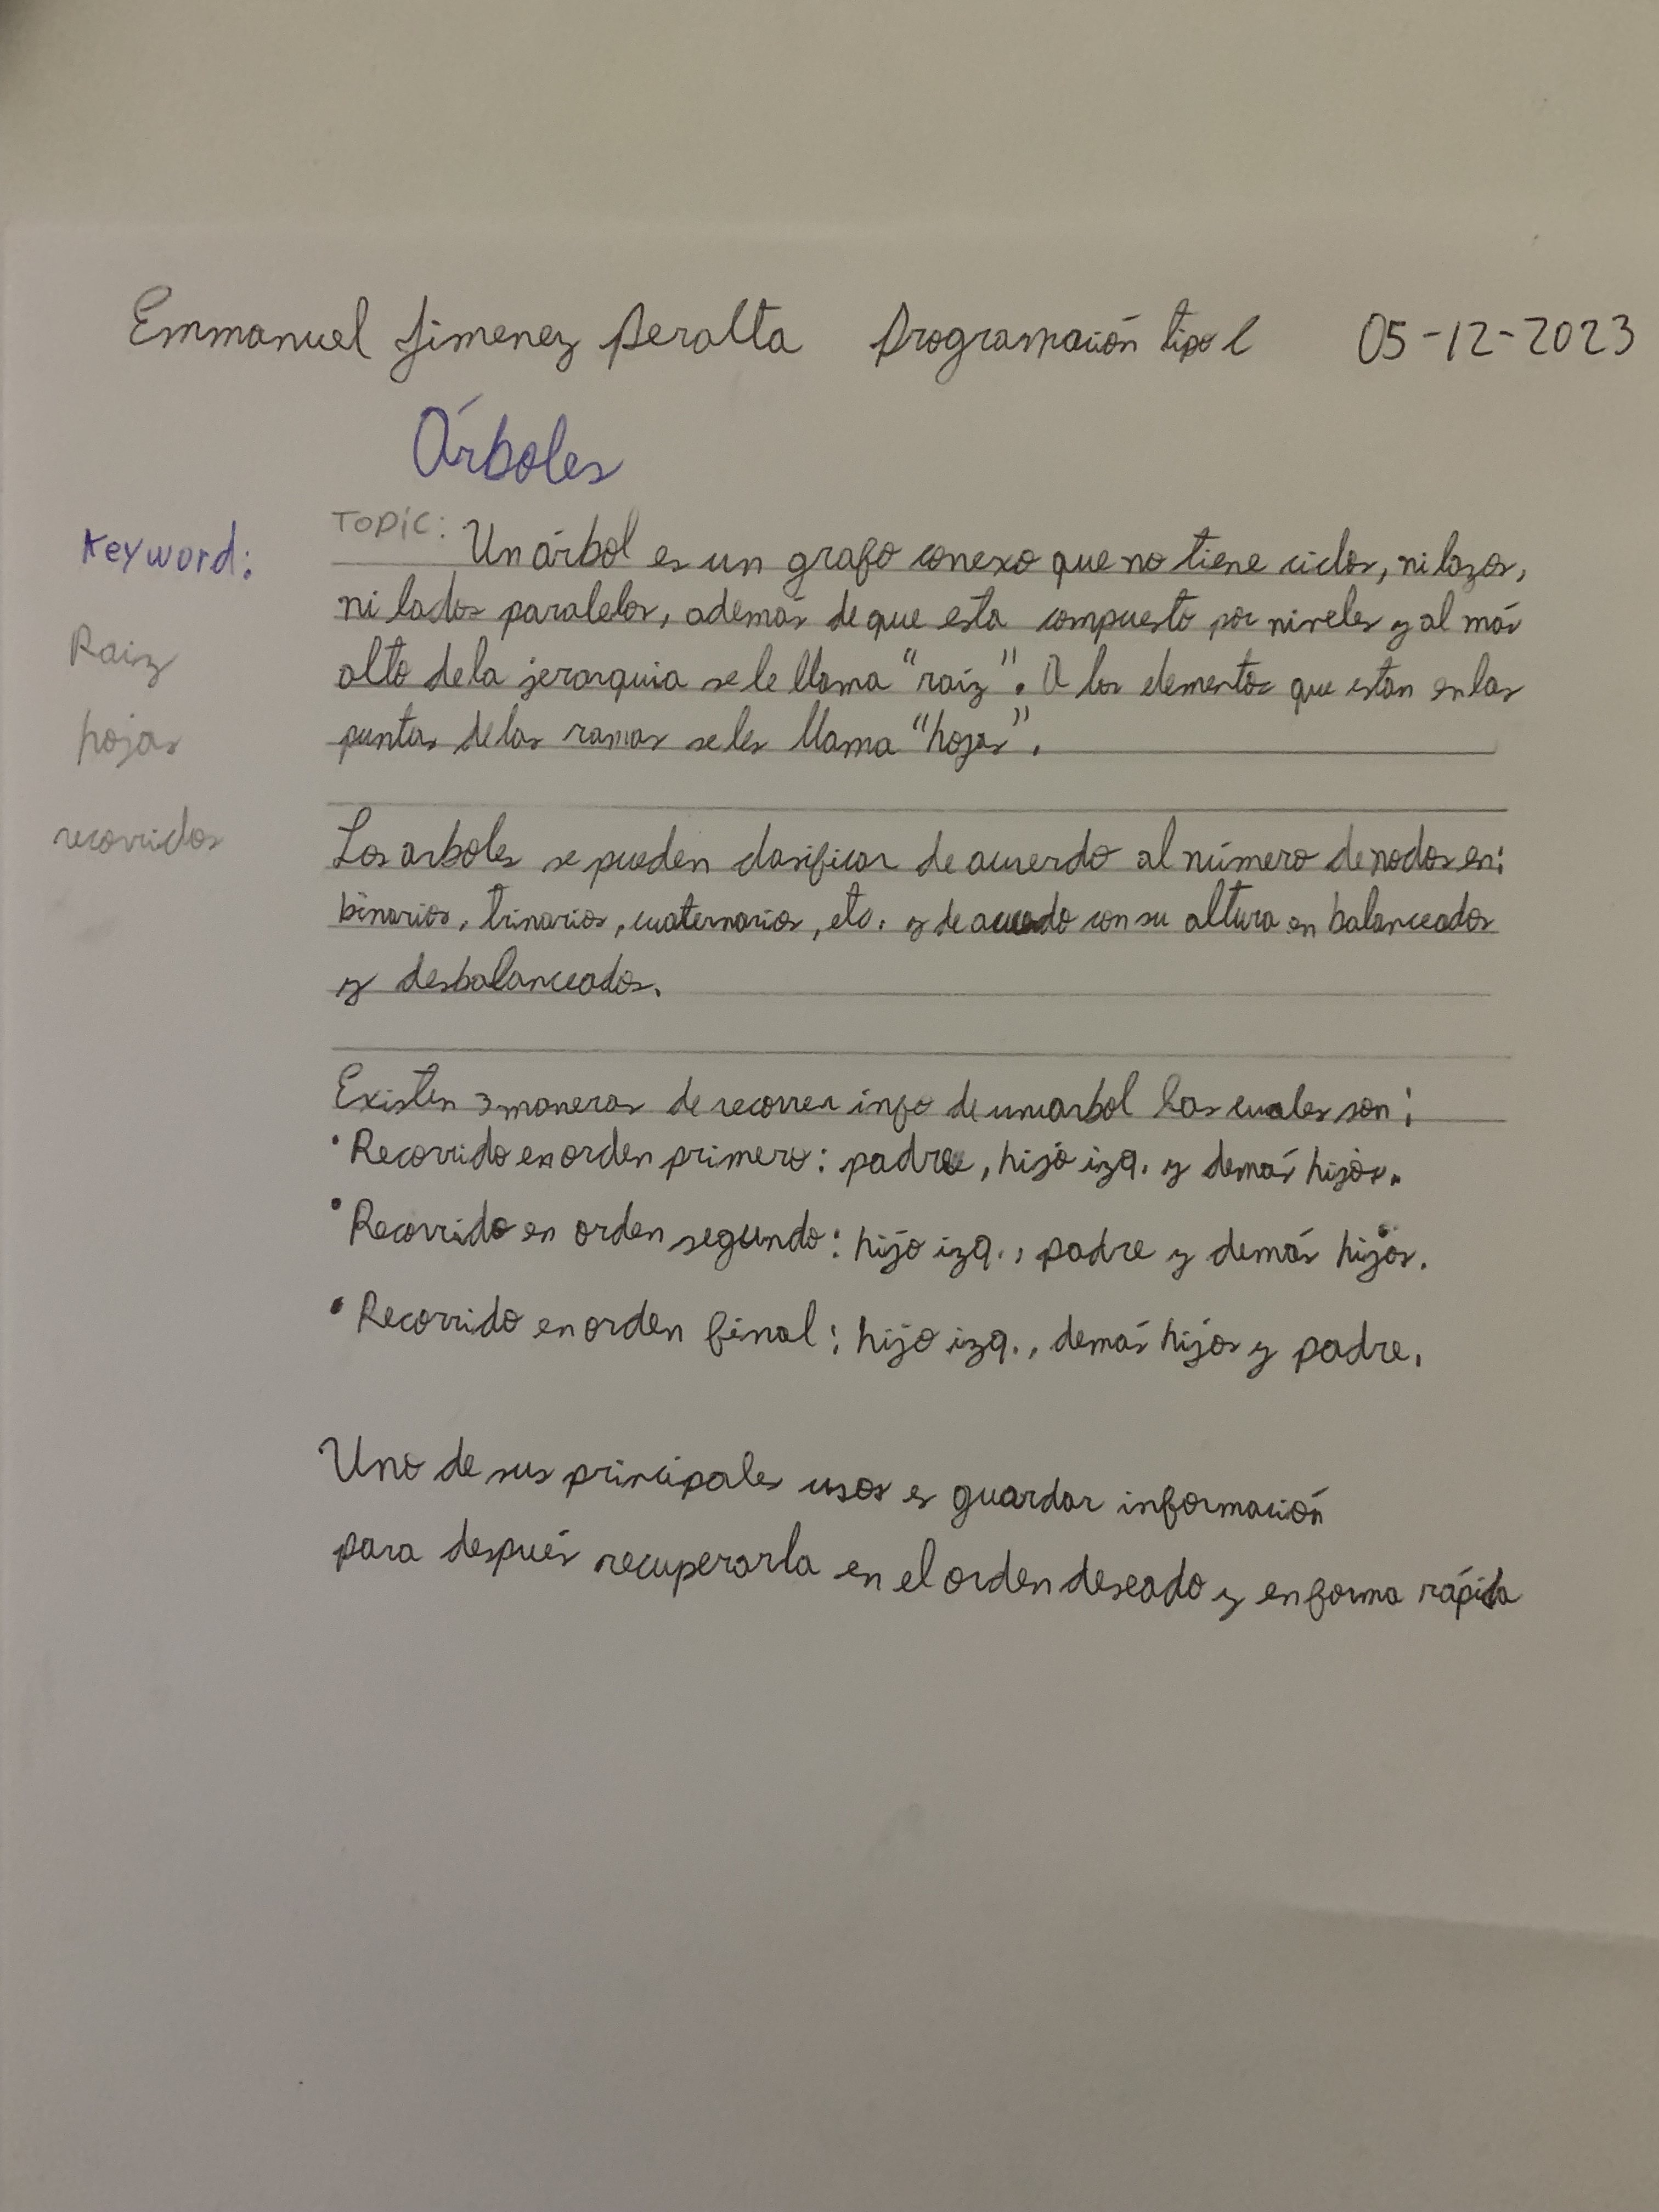 Emmanuel Jimenez Peralta Programación tipo l 05-12-2023
Árboles
Keyword:
Raiz
hojas
recorridos
Topic: Un árbol es un grafo conexo que no tiene ciclos, ni lazos,
ni lados paralelos, además de que esta compuesto por niveles y al más
alto de la jerarquia se le llama "raíz". A los elementos que estan en las
puntas de las ramas se les llama "hojas".
Los arboles se pueden clasificar de acuerdo al número de nodos en:
binarios, trinarios, cuaternarios, etc. y de acuerdo con su altura en balanceados
y desbalanceados.
Existen 3 maneras de recorrer info de un arbol las cuales son:
• Recorrido en orden primero: padre, hijo izq. y demás hijos.
• Recorrido en orden segundo: hijo izq., padre y demás hijos.
• Recorrido en orden final: hijo izq., demás hijos y padre.
Uno de sus principales usos es guardar información
para después recuperarla en el orden deseado y en forma rápida